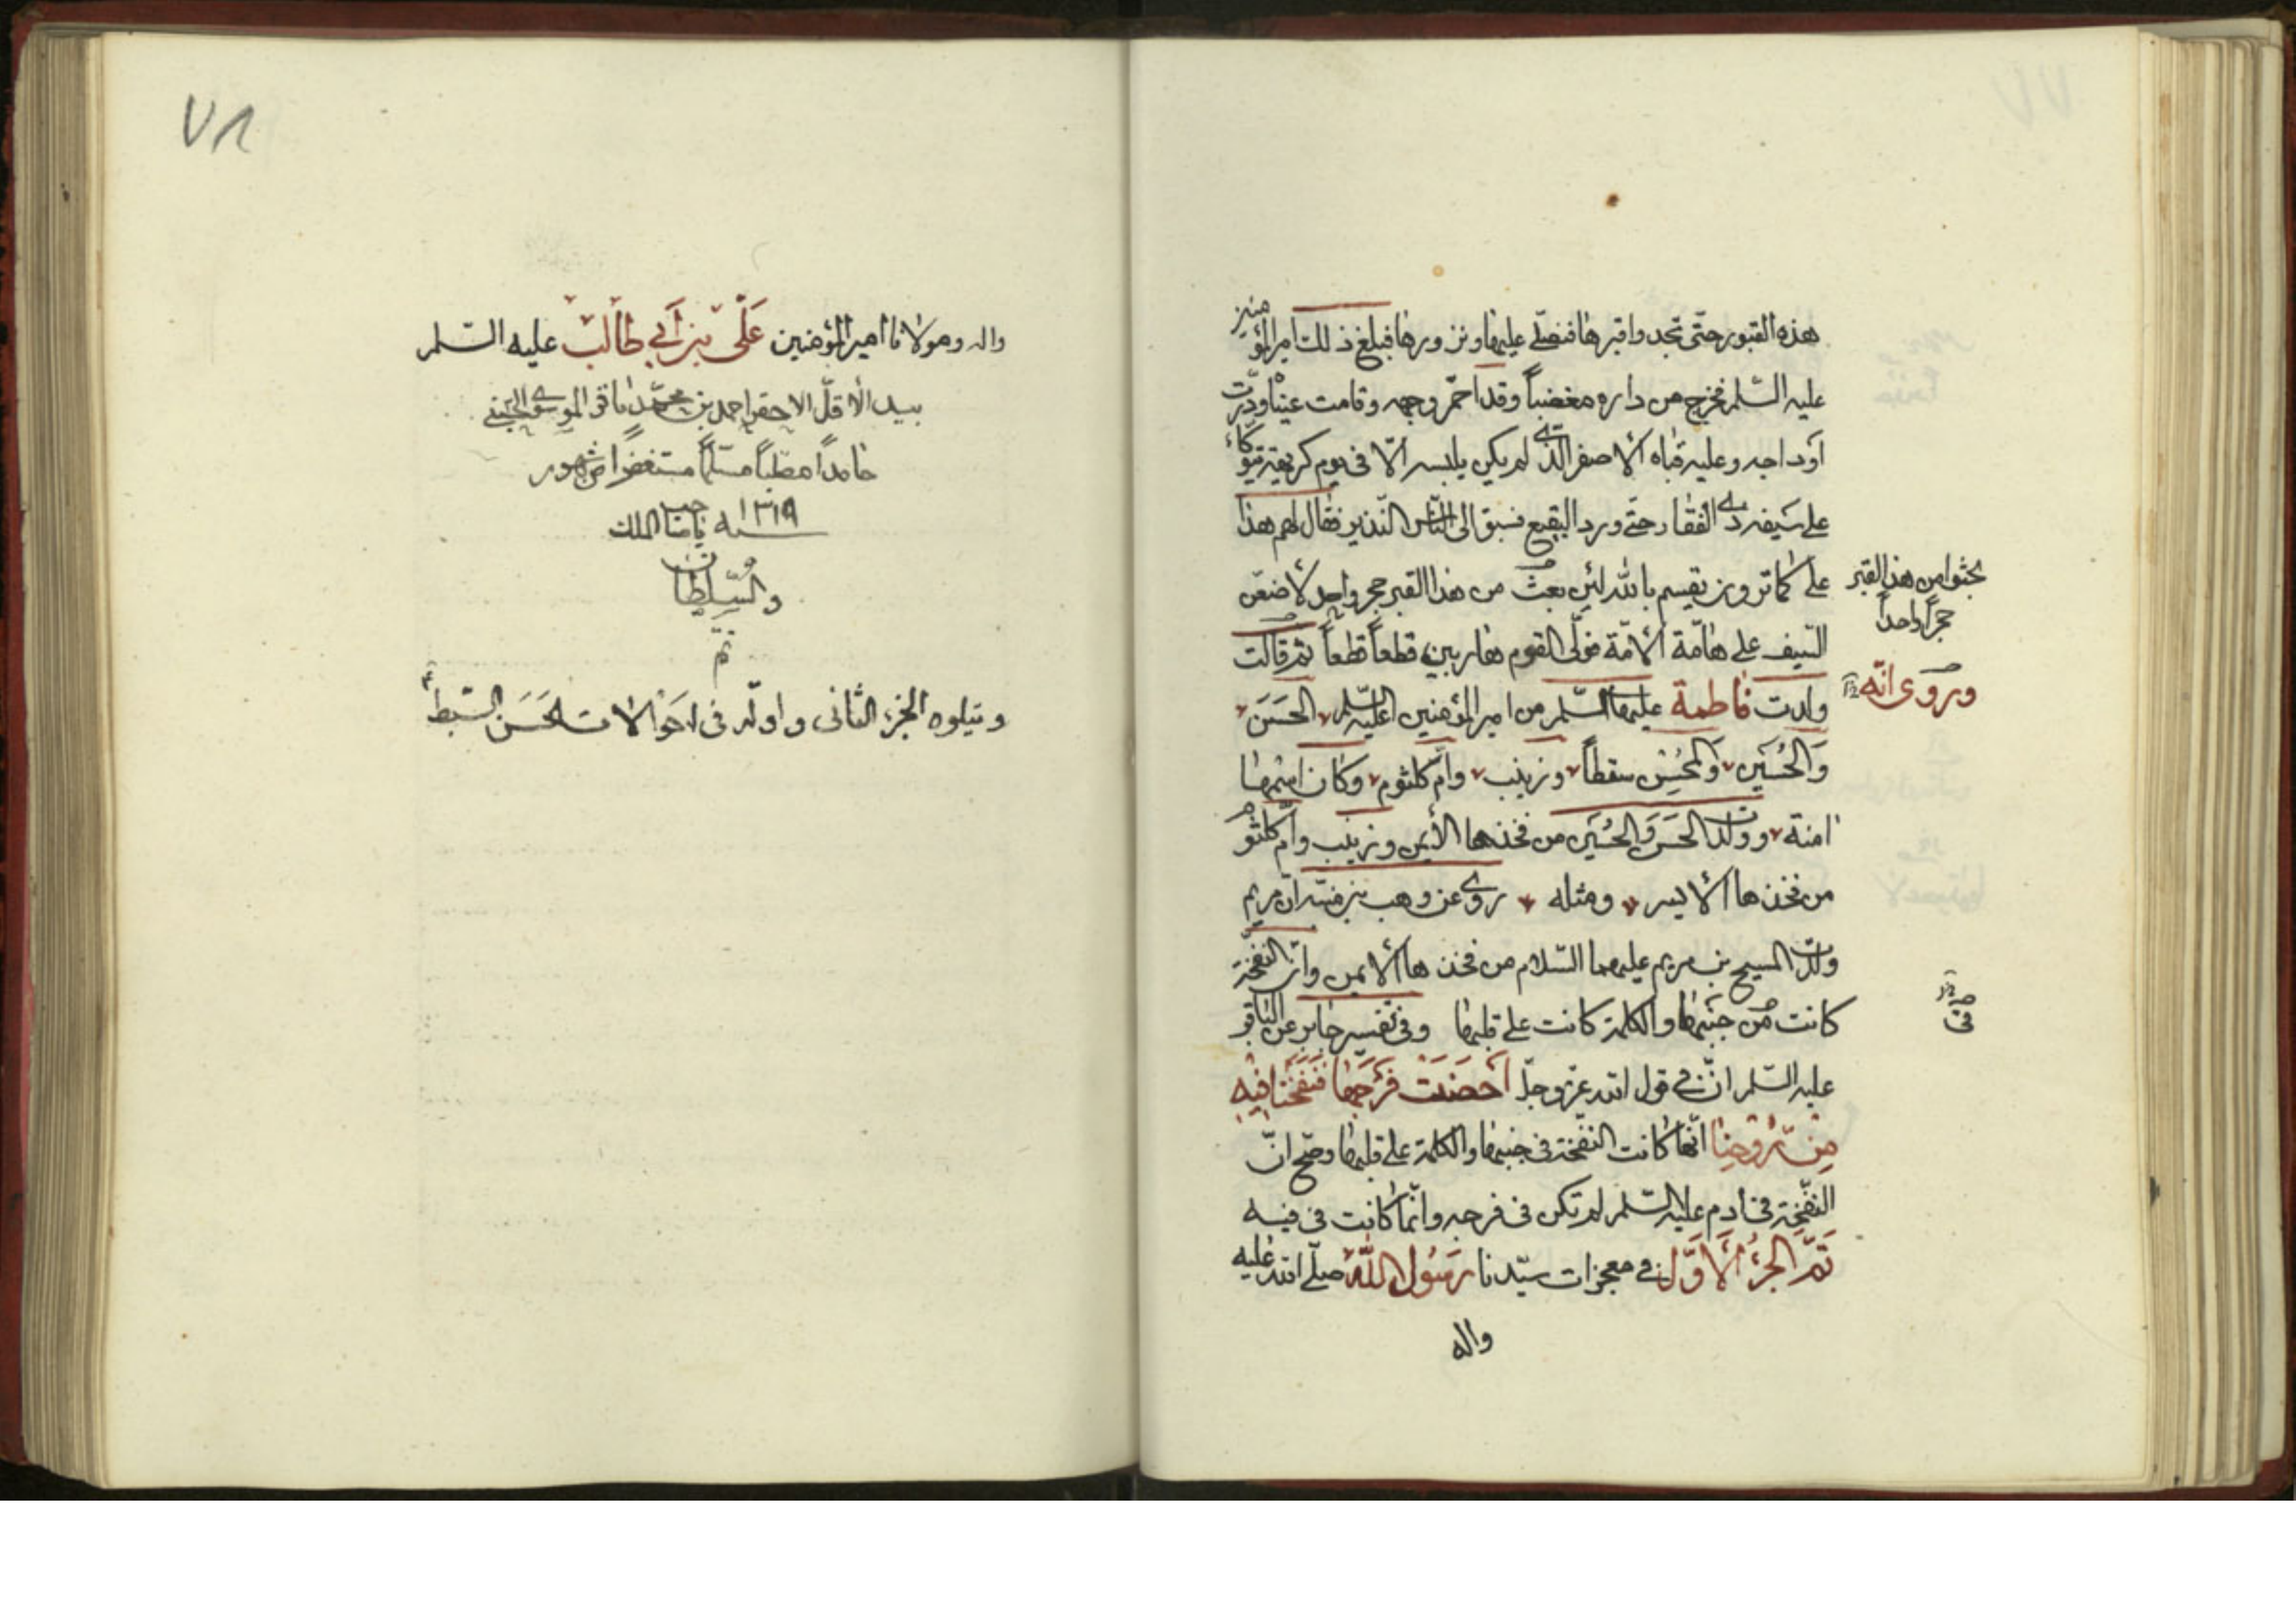 هذه القبور حتّى نجدوا قبرها فنصلّي عليها ونزورها فبلغ ذلك امير المؤمنين
عليه السّلم فخرج من داره مغضباً وقد احمّر وجهه وقامت عيناه ودرّت
اوداجه وعليه قباه الاصفر الّذي لم يكن يلبسه الّا في يوم كريهة يتوكّاء
على سيفه ذي الفقار حتّى ورد البقيع فسبق الى النّاس النّذير فقال لهم هذا
على كما ترون يقسم بالله لئن بعث من هذا القبر حجر واحد لاضعنّ
بحثوا من هذا القبر
حجراً واحداً
السّيف على هامّة الامّة فولّى القوم هاربين قطعاً قطعاً ثم قالت
وروي انّه
ولدت فاطمة عليها السّلم من امير المؤمنين عليه السّلم الحَسَن
وَالحُسَين وَالمحُسِن سقطاً وزينب وامّ كلثوم وكان اسمها
امنة وولدت الحسَن وَالحُسَين من فخذها الأيمن وزينب وامّ كلثوم
من فخذها الأيسر ومثله روي عن وهب بن منبّه انّ مريم
ولدت المسيح بن مريم عليهما السّلام من فخذها الأيمن وانّ النفخة
كانت من جنبها والكلمة كانت على قلبها وفي تفسير جابر عن الباقر
في
عليه السّلم انّ في قول الله عزّ وجلّ اَحصَنَت فَرْجَها فَنَفَخْنا فيِه
مِنْ رُوْحِنا انّها كانت النفخة في جنبها والكلمة على قلبها وصحّ انّ
النفخة في ادم عليه السّلم لم تكن في فرجه وانّما كانت في فيه
تَمَّ الجزءُ الأوَّل في معجزات سيّدنا رَسُول اللّه صلّى الله عليه
واله
٧٨
واله ومولانا امير المؤمنين عَلَى بن اَبي طالب عليه السّلم
بيد الاقلّ الاحقر احمد بن محمّد باقر الموسوي
حامداً مصلّياً مسلّماً مستغفراً من شهور
سنه ١٣١٩
تم
ويتلوه الجزء الثاني واوله في احَوالات الحَسَن السّبط